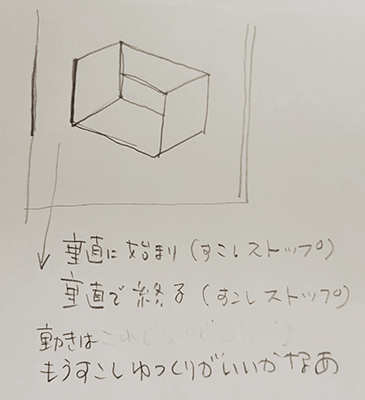 垂直に始まり(すこしストップ)
垂直で終る(すこしストップ)
動きは
もうすこしゆっくりがいいかなあ